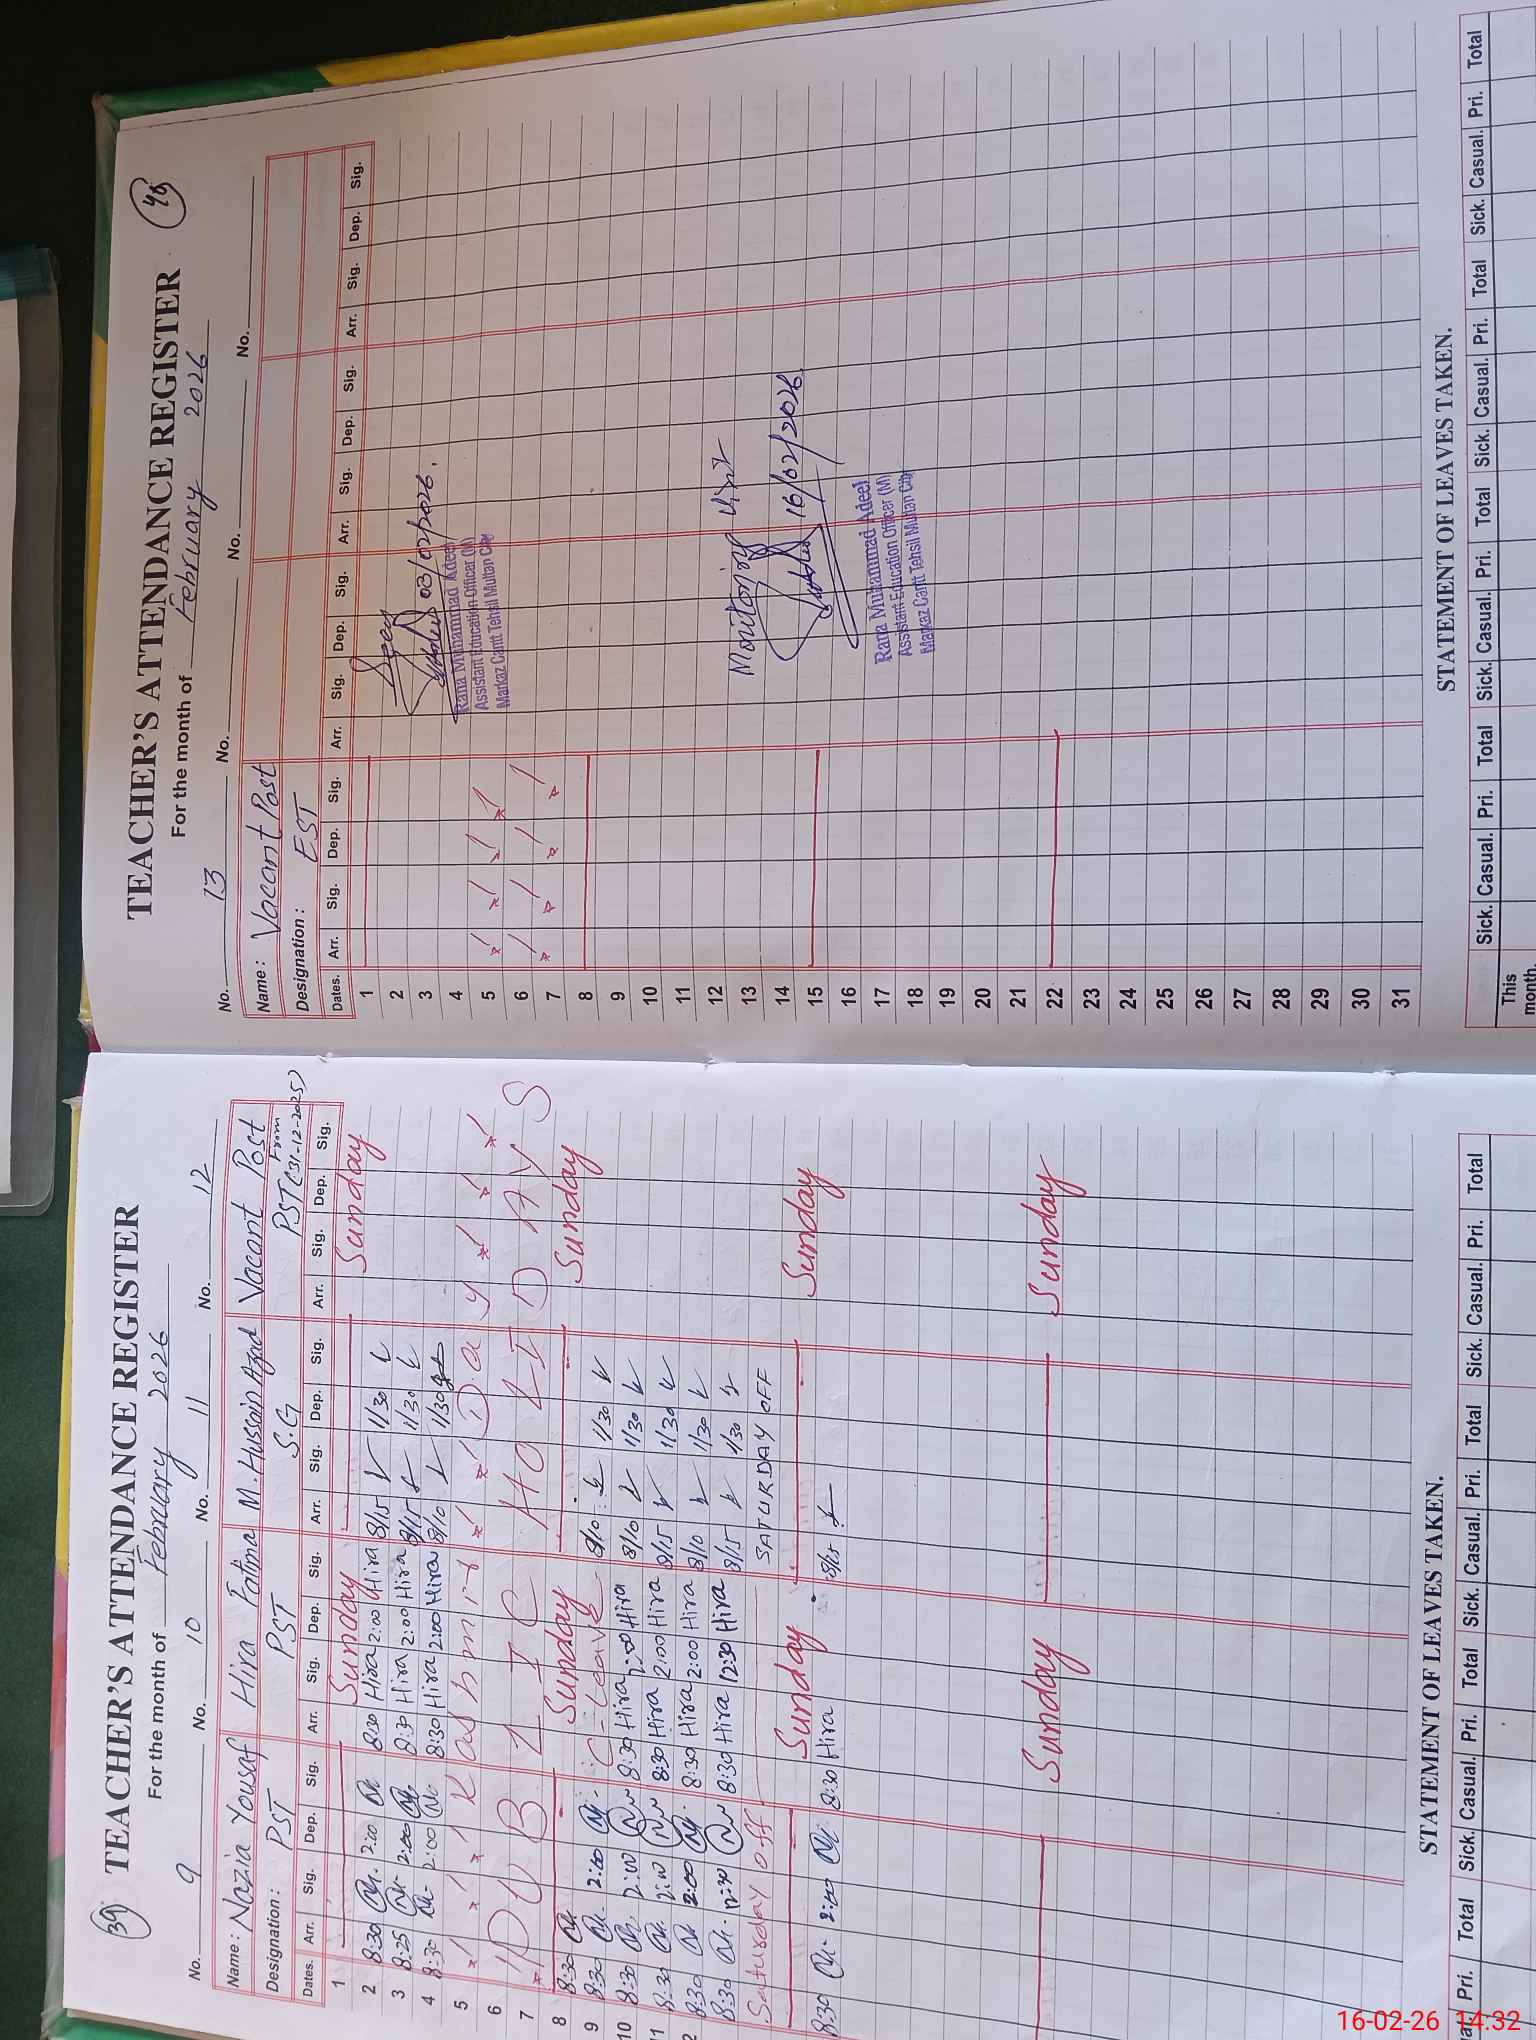 39
TEACHER'S ATTENDANCE REGISTER
For the month of February 2026
No. 9 No. 10 No. 11 No. 12
Name: Nazia Yousaf Hira Fatima M. Hussain Azad Vacant Post
Designation: PST PST S.G PST (From 31-12-2025)
Dates. Arr. Sig. Dep. Sig. Arr. Sig. Dep. Sig. Arr. Sig. Dep. Sig. Arr. Sig. Dep. Sig.
1 Sunday Sunday
2 8:30 2:00 8:30 Hira 2:00 Hira 8/15 1/30
3 8:25 2:00 8:30 Hira 2:00 Hira 8/15 1/30
4 8:30 2:00 8:30 Hira 2:00 Hira 8/10 1/30
5 Kashmir Day
6 PUBLIC HOLIDAYS
7
8 8:30 Sunday Sunday
9 8:30 2:00 C-Leave 8/10 1/30
10 8:30 2:00 8:30 Hira 2:00 Hira 8/10 1/30
11 8:30 2:00 8:30 Hira 2:00 Hira 8/15 1/30
2 8:30 2:00 8:30 Hira 2:00 Hira 8/10 1/30
8:30 12:30 8:30 Hira 12:30 Hira 8/15 1/30
Saturday off SATURDAY OFF
Sunday Sunday
8:30 2:00 8:30 Hira 8/15
Sunday Sunday
STATEMENT OF LEAVES TAKEN.
Pri. Total Sick. Casual. Pri. Total Sick. Casual. Pri. Total Sick. Casual. Pri. Total
48
TEACHER'S ATTENDANCE REGISTER
For the month of February 2026
No. 13 No. No. No.
Name: Vacant Post
Designation: EST
Dates. Arr. Sig. Dep. Sig. Arr. Sig. Dep. Sig. Arr. Sig. Dep. Sig. Arr. Sig. Dep. Sig.
1
2 Seen
3 03/02/2026.
4 Rana Muhammad Adeel
5 Assistant Education Officer (M)
Markaz Cantt Tehsil Multan City
6
7
8
9
10
11
12
13 Monitoring Visit
14
15 16/02/2026.
16
17 Rana Muhammad Adeel
Assistant Education Officer (M)
18 Markaz Cantt Tehsil Multan City
19
20
21
22
23
24
25
26
27
28
29
30
31
STATEMENT OF LEAVES TAKEN.
Sick. Casual. Pri. Total Sick. Casual. Pri. Total Sick. Casual. Pri. Total Sick. Casual. Pri. Total
This
month.
16-02-26 14:32